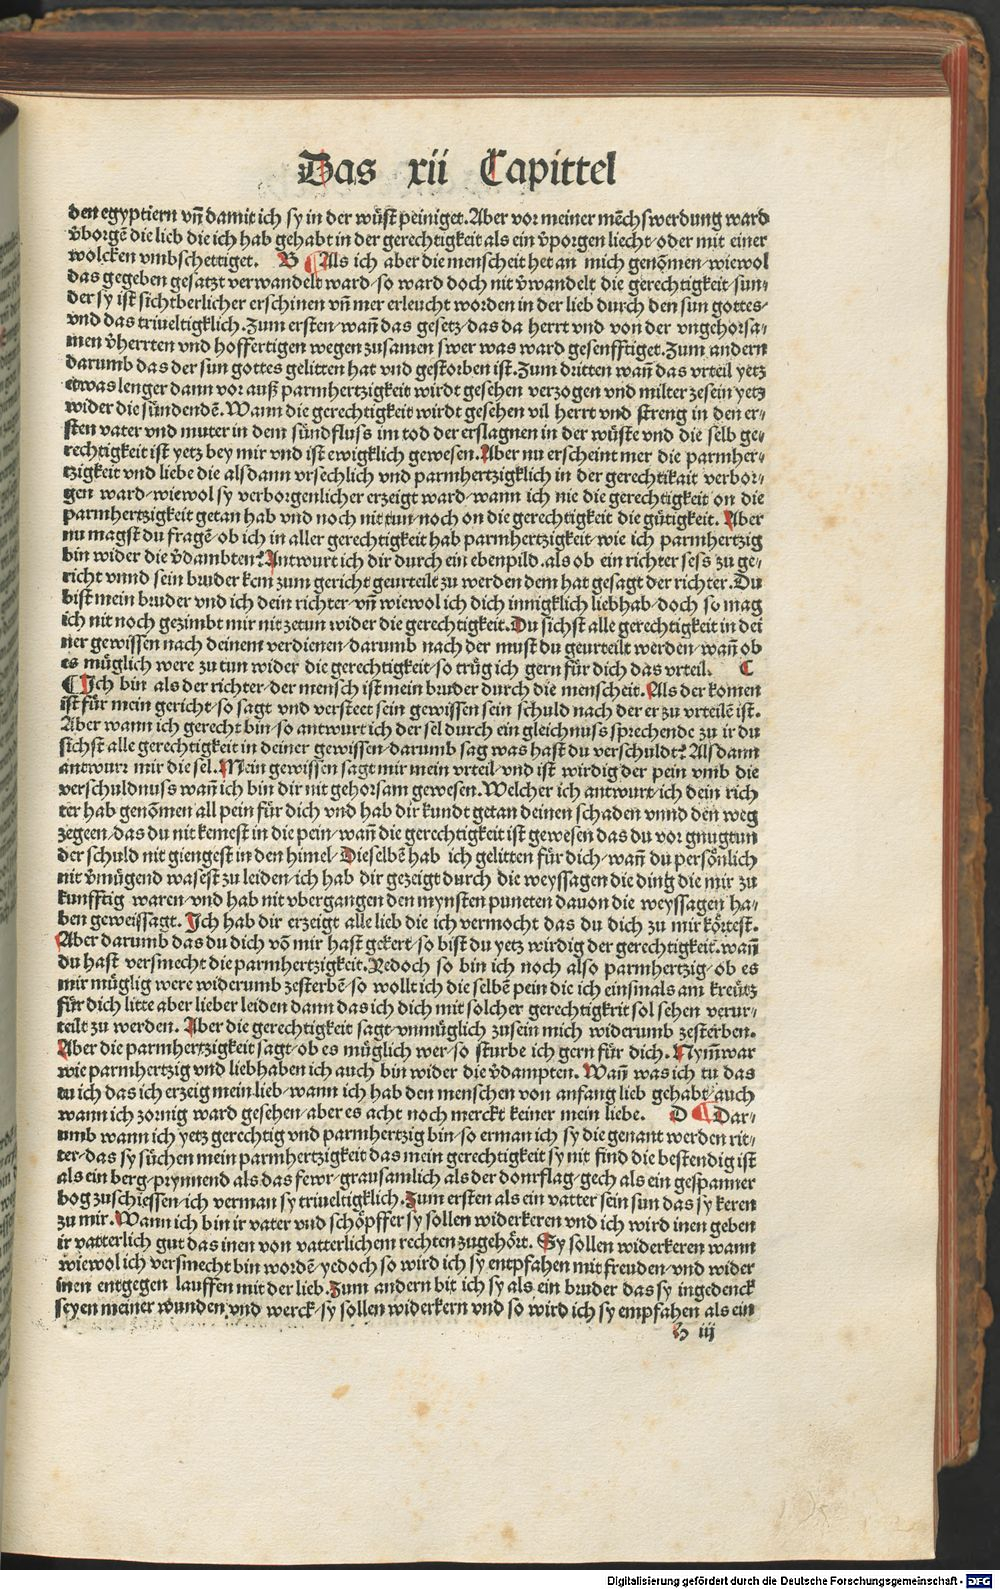 Das xii Capittel
den egyptiern vñ damit ich sy in der wuͤst peiniget. Aber vor meiner mẽchswerdung ward
v̄borgẽ die lieb die ich hab gehabt in der gerechtigkeit als ein v̄porgen liecht/oder mit einer
wolcken vmbschettiget. B ¶ Als ich aber die menscheit het an mich genõmen/wiewol
das gegeben gesatzt verwandelt ward/so ward doch nit v̄wandelt die gerechtigkeit/sun⸗
der sy ist sichtberlicher erschinen vñ mer erleucht worden in der lieb durch den sun gottes/
vnd das triueltigklich. Zum ersten/wañ das gesetz/das da herrt vnd von der vngehorsa⸗
men v̄herrten vnd hoffertigen wegen zusamen swer was ward gesenfftiget. Zum andern
darumb das der sun gottes gelitten hat vnd gestorben ist. Zum dritten wañ das vrteil yetz
etwas lenger dann vor auß parmhertzigkeit wirdt gesehen verzogen vnd milter zesein yetz
wider die suͤndendẽ. Wann die gerechtigkeit wirdt gesehen vil herrt vnd streng in den er⸗
sten vater vnd muter in dem suͤndfluss im tod der erslagnen in der wuͤste vnd die selb ge⸗
rechtigkeit ist yetz bey mir vnd ist ewigklich gewesen. Aber nu erscheint mer die parmher⸗
tzigkeit vnd liebe die als dann vrsechlich vnd parmhertzigklich in der gerechtikait verbor⸗
gen ward/wiewol sy verborgenlicher erzeigt ward/wann ich nie die gerechtigkeit on die
parmhertzigkeit getan hab vnd noch nit tun/noch on die gerechtigkeit die guͤtigkeit. Aber
nu magst du fragẽ/ob ich in aller gerechtigkeit hab parmhertzigkeit/wie ich parmhertzig
bin wider die v̄dambten? Antwurt ich dir durch ein ebenpild. als ob ein richter sess zu ge⸗
richt vnnd sein bruder kem zum gericht geurteilt zu werden dem hat gesagt der richter. Du
bist mein bruder vnd ich dein richter/vñ wiewol ich dich innigklich liebhab/doch so mag
ich nit noch gezimbt mir nit zetun wider die gerechtigkeit. Du sichst alle gerechtigkeit in dei
ner gewissen nach deinem verdienen/darumb nach der must du geurteilt werden/wañ ob
es muͤglich were zu tun wider die gerechtigkeit/so truͤg ich gern fuͤr dich das vrteil. C
¶ Ich bin als der richter/der mensch ist mein bruder durch die menscheit. Als der komen
ist fuͤr mein gericht/so sagt vnd versteet sein gewissen sein schuld nach der er zu vrteilẽ ist.
Aber wann ich gerecht bin/so antwurt ich der sel durch ein gleichnuss sprechende zu ir du
sichst alle gerechtigkeit in deiner gewissen/darumb sag was hast du verschuldt? Als dann
antwurt mir die sel. Mein gewissen sagt mir mein vrteil/vnd ist wirdig der pein vmb die
verschuldnuss wañ ich bin dir nit gehorsam gewesen. Welcher ich antwurt/ich dein rich
ter hab genõmen all pein fuͤr dich vnd hab dir kundt getan deinen schaden vnnd den weg
zegeen/das du nit kemest in die pein/wañ die gerechtigkeit ist gewesen das du vor gnugtun
der schuld nit giengest in den himel/Dieselbẽ hab ich gelitten fuͤr dich/wañ du persoͤnlich
nit v̄muͤgend wasest zu leiden/ich hab dir gezeigt durch die weyssagen die ding die mir zu
kunfftig waren/vnd hab nit vbergangen den mynsten puncten dauon die weyssagen ha⸗
ben geweissagt. Ich hab dir erzeigt alle lieb die ich vermocht das du dich zu mir koͤrtest.
Aber darumb das du dich võ mir hast gekert/so bist du yetz wirdig der gerechtigkeit. wañ
du hast versmecht die parmhertzigkeit. Yedoch so bin ich noch also parmhertzig/ob es
mir muͤglig were widerumb zesterbẽ/so wollt ich die selbẽ pein die ich einsmals am kreuͤtz
fuͤr dich litte aber lieber leiden dann das ich dich mit solcher gerechtigkrit sol sehen verur⸗
teilt zu werden. Aber die gerechtigkeit sagt/vnmuͤglich zusein mich widerumb zesterben.
Aber die parmhertzigkeit sagt/ob es muͤglich wer/so sturbe ich gern fuͤr dich. Nym̃war
wie parmhertzig vnd liebhaben ich auch bin wider die v̄dampten. Wañ was ich tu das
tu ich das ich erzeig mein lieb/wann ich hab den menschen von anfang lieb gehabt/auch
wann ich zornig ward gesehen/aber es acht noch merckt keiner mein liebe. D ¶ Dar⸗
umb wann ich yetz gerechtig vnd parmhertzig bin/so erman ich sy die genant werden rit⸗
ter/das sy suͤchen mein parmhertzigkeit das mein gerechtigkeit sy nit find die bestendig ist
als ein berg/prynnend als das fewr/grausamlich als der donrflag/gech als ein gespanner
bog zuschiessen/ich verman sy triueltigklich. Zum ersten als ein vatter sein sun das sy keren
zu mir. Wann ich bin ir vater vnd schoͤpffer sy sollen widerkeren vnd ich wird inen geben
ir vatterlich gut das inen von vatterlichem rechten zugehoͤrt. Sy sollen widerkeren wann
wiewol ich versmecht bin wordẽ/yedoch so wird ich sy entpfahen mit freuden/vnd wider
inen entgegen lauffen mit der lieb. Zum andern bit ich sy als ein bruder das sy ingedenck
seyen meiner wunden/vnd werck/sy sollen widerkern vnd so wird ich sy empfahen als ein
h iij
Digitalisierung gefördert durch die Deutsche Forschungsgemeinschaft - DFG